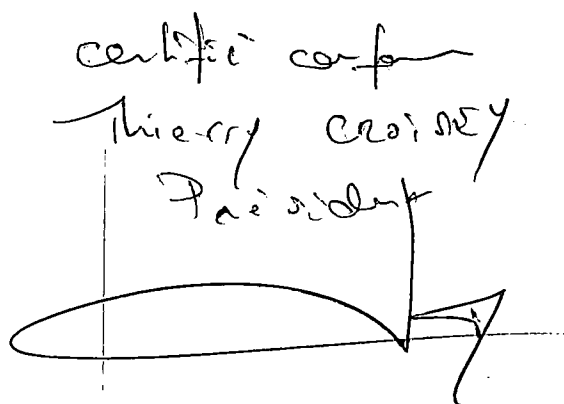 certifié conforme
Thierry CROISEY
Président